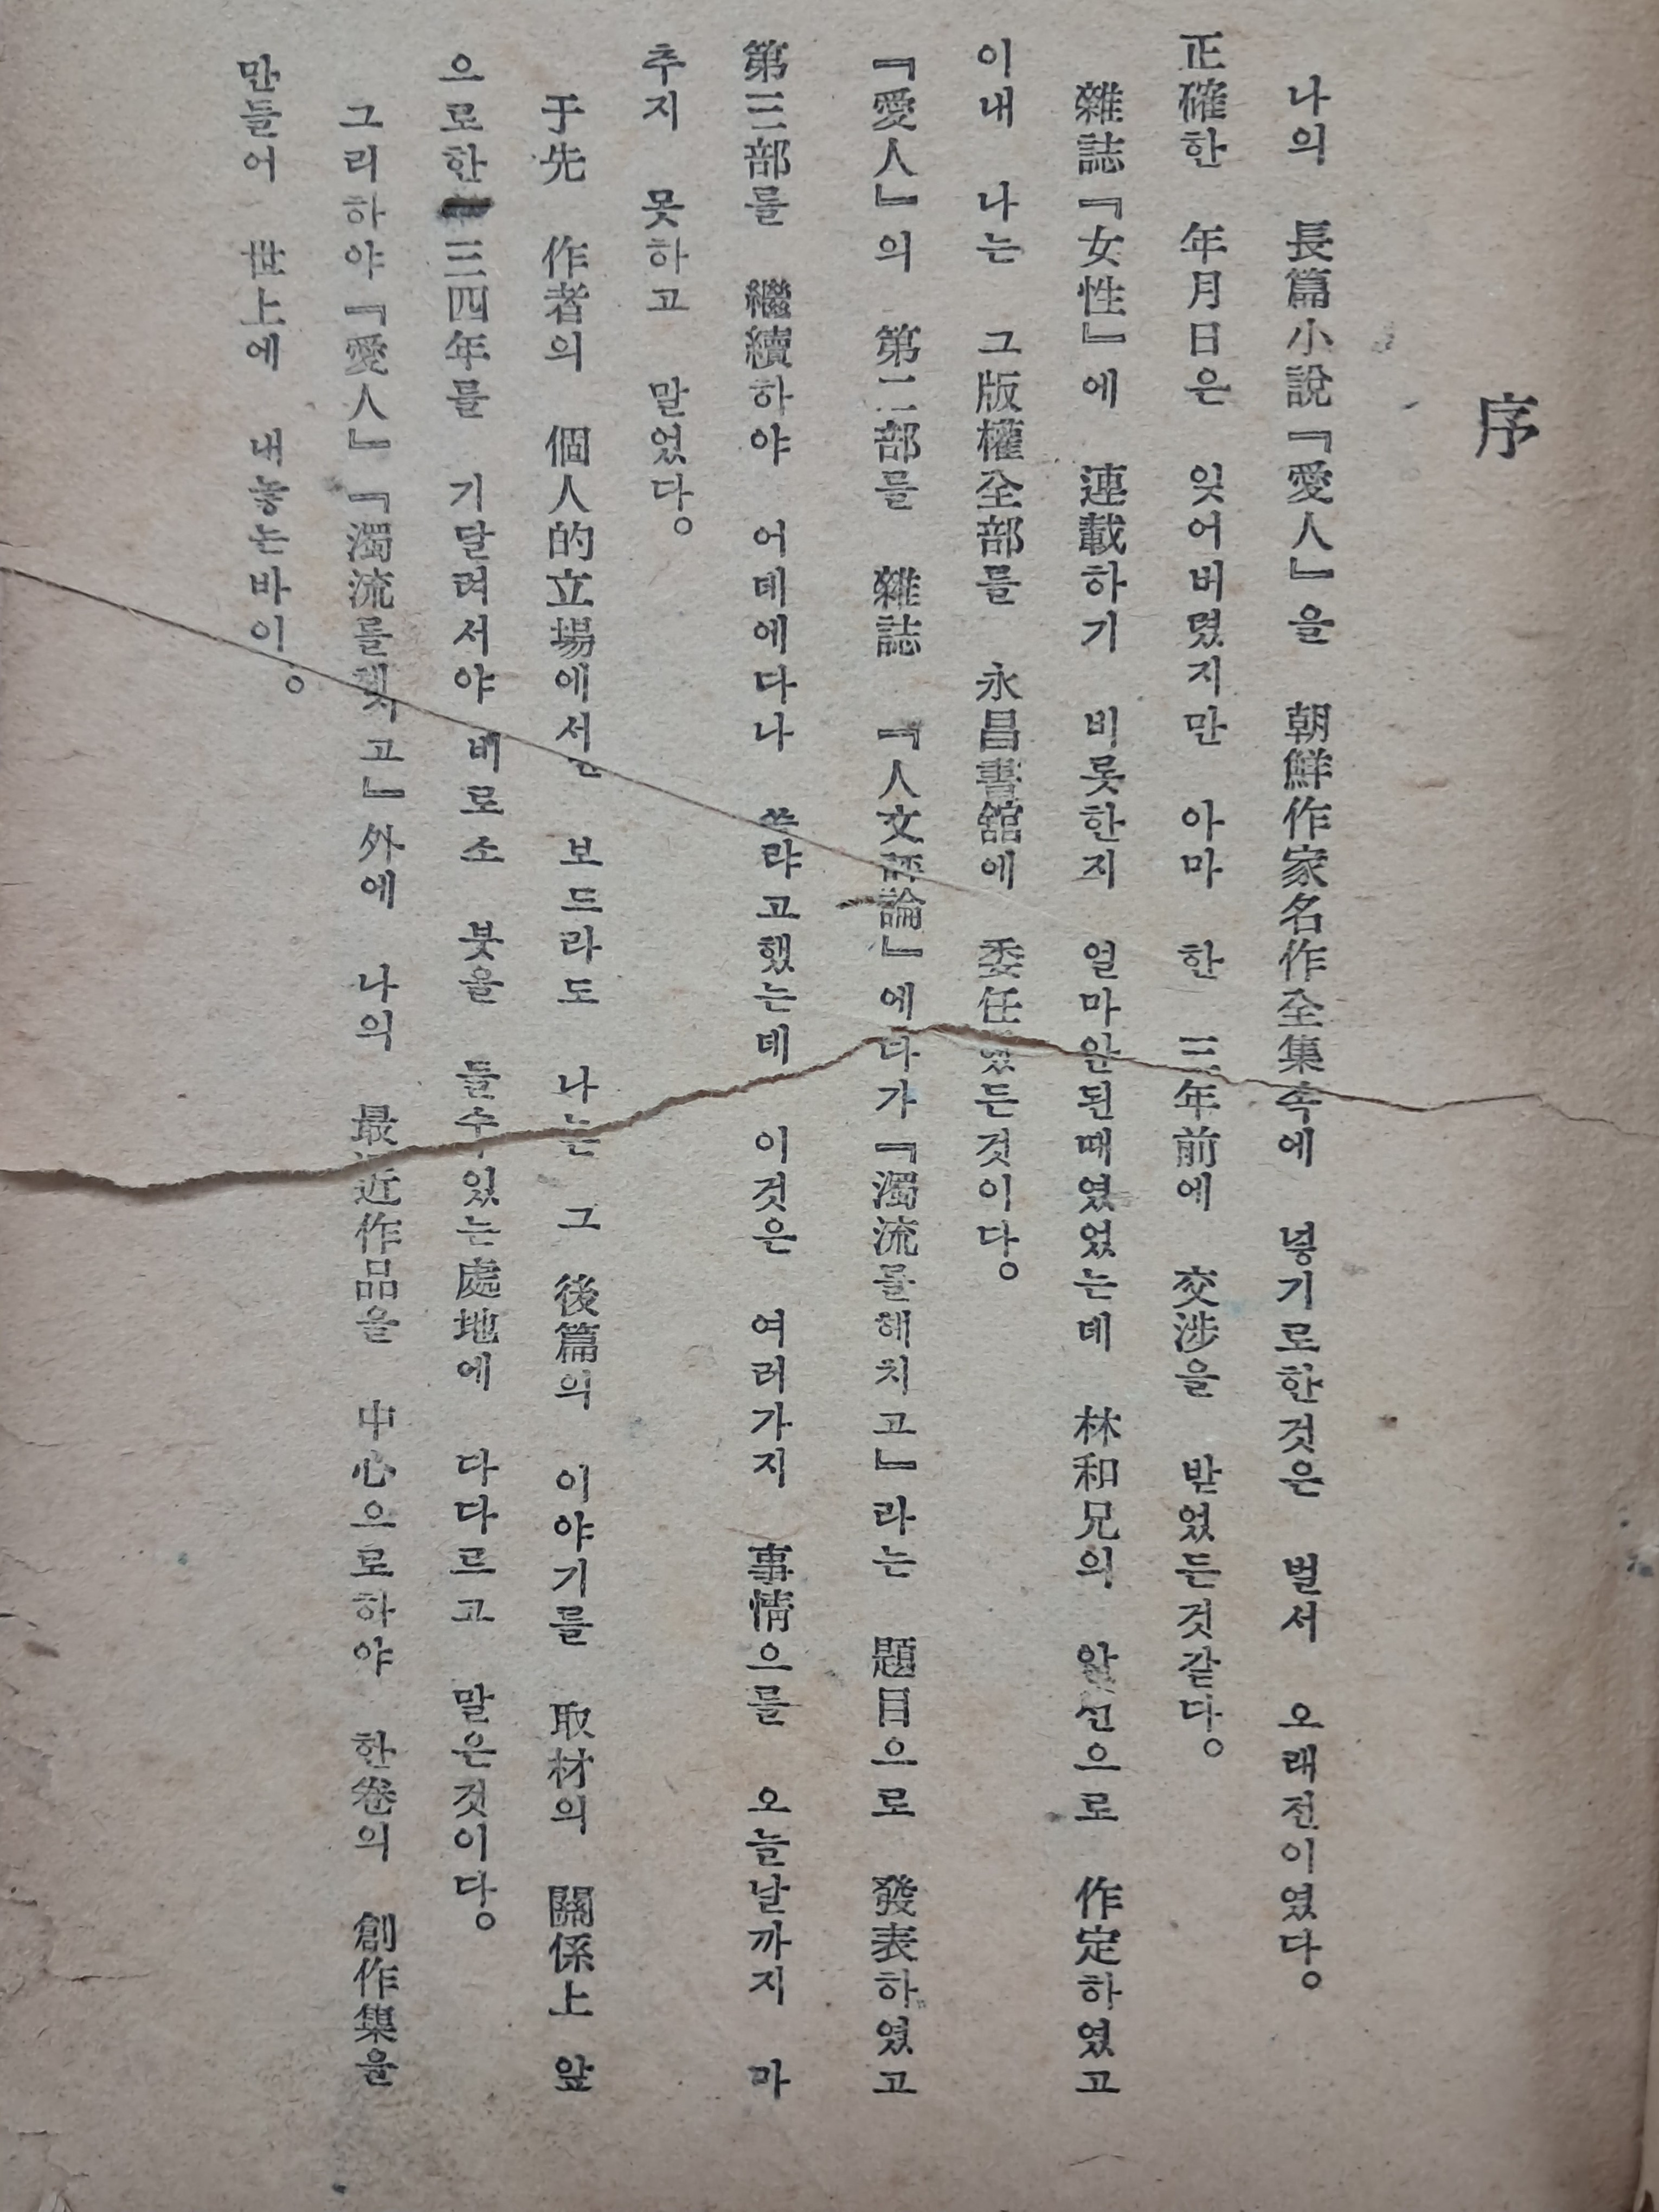 序
나의 長篇小說『愛人』을 朝鮮作家名作全集속에 넣기로한것은 벌서 오래전이였다。
正確한 年月日은 잊어버렸지만 아마 한 三年前에 交涉을 받었든것같다。
雜誌『女性』에 連載하기 비롯한지 얼마안된때였었는데 林和兄의 알선으로 作定하였고
이내 나는 그版權全部를 永昌書舘에 委任했든것이다。
『愛人』의 第二部를 雜誌 『人文評論』에다가『濁流를헤치고』라는 題目으로 發表하였고
第三部를 繼續하야 어데에다나 쓰랴고했는데 이것은 여러가지 事情으를 오늘날까지 마
추지 못하고 말었다。
于先 作者의 個人的立場에서는 보드라도 나는 그 後篇의 이야기를 取材의 關係上 앞
으로한 三四年를 기달려서야 비로소 붓을 들수있는處地에 다다르고 말은것이다。
그리하야『愛人』『濁流를헷치고』外에 나의 最近作品을 中心으로하야 한卷의 創作集을
만들어 世上에 내놓는바이。